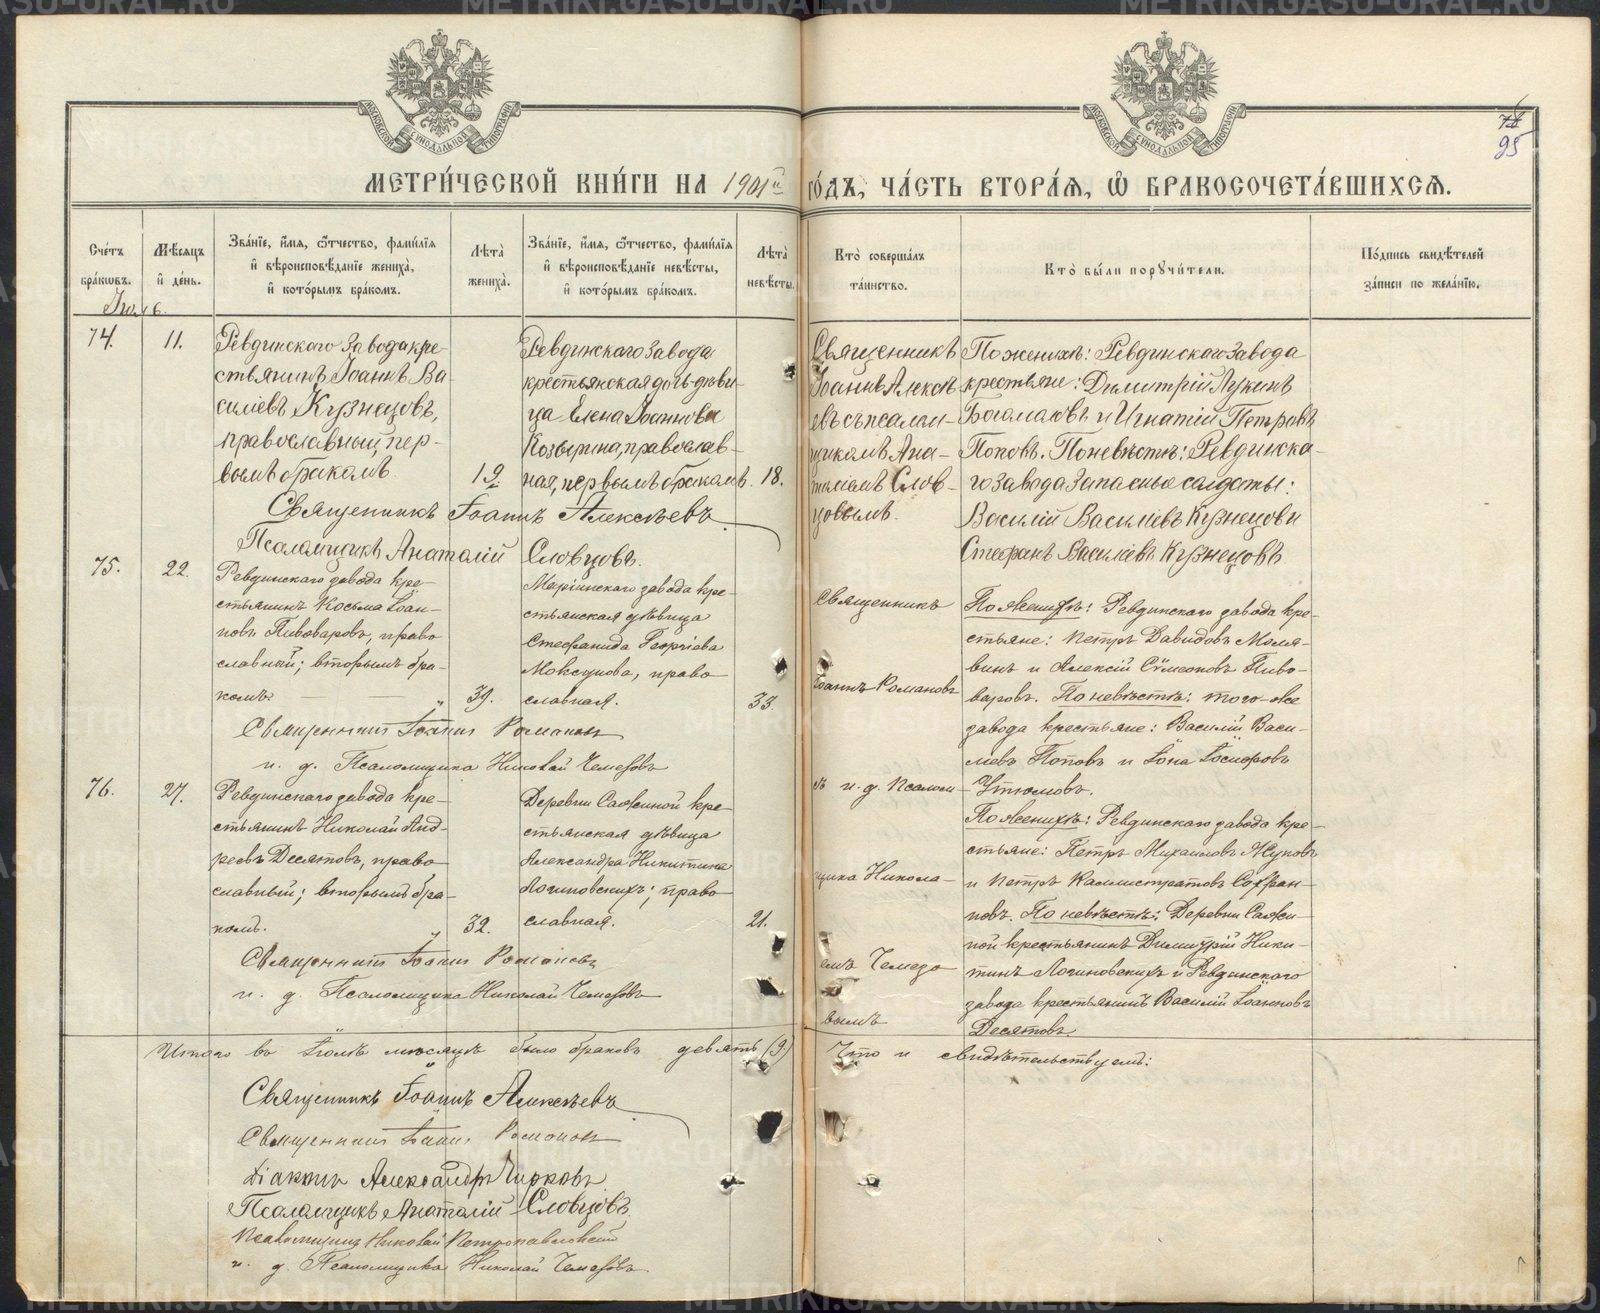 МЕТРИ́ЧЕСКОЙ КНИ́ГИ НА 1901й ГО́ДЪ, ЧА́СТЬ ВТОРА́Я, Ѽ БРАКОСОЧЕТА́ВШИХСЯ.
95
Сче́тъ бра́кѡвъ.
Мѣ́сяцъ и҆ де́нь.
Зва́нїе, и҆́мя, ѻ҆́тчество, фами́лїя и҆ вѣроисповѣ́данїе жениха̀, и҆ кото́рымъ бра́комъ.
Лѣта̀ жениха̀.
Зва́нїе, и҆́мя, ѻ҆́тчество, фами́лїя и҆ вѣроисповѣ́данїе невѣ́сты, и҆ кото́рымъ бра́комъ.
Лѣта̀ невѣ́сты.
Кто̀ соверша́лъ та́инство.
Кто̀ бы́ли поручи́тели.
По́дпись свидѣ́телей за́писи по жела́нїю.
74.
11.
Ревдинскаго завода кре-
стьянинъ Іоаннъ Ва-
силіевъ Кузнецовъ,
православный, пер-
вымъ бракомъ.
19.
Ревдинскаго завода
крестьянская дочь-дѣви-
ца Елена Іоаннова
Козырина, православ-
ная, первымъ бракомъ.
18.
Священникъ
Іоаннъ Алексѣ-
евъ съ псалом-
щикомъ Ана-
толіемъ Слов-
цовымъ.
По женихѣ: Ревдинскаго завода
крестьяне: Димитрій Лукинъ
и Игнатій Петровъ
Поповъ. По невѣстѣ: Ревдинска-
го завода запасные солдаты:
Василій Василіевъ Кузнецовъ и
Стефанъ Василіевъ Кузнецовъ
Священникъ Іоаннъ Алексѣевъ
Псаломщикъ Анатолій Словцовъ.
75.
22.
Ревдинскаго завода кре-
стьянинъ Косьма Іоан-
новъ Пивоваровъ, право
славный; вторымъ бра-
комъ.
39.
Маріинскаго завода кре-
стьянская дѣвица
Стефанида Георгіева
право
славная.
33.
Священникъ
Іоаннъ Романовъ
По женихѣ: Ревдинскаго завода кре-
стьяне: Петръ Давидовъ Моля-
винъ и Алексій Сѵмеоновъ Пиво-
варовъ. По невѣстѣ: того-же
завода крестьяне: Василій Васи-
ліевъ Поповъ и Іона Іосифовъ
Утюмовъ.
Священникъ Іоаннъ Романовъ
и. д. Псаломщика Николай Чемезовъ
76.
27.
Ревдинскаго завода кре-
стьянинъ Николай Анд-
реевъ Десятовъ, право
славный; вторымъ бра-
комъ.
32.
Деревни Сажиной кре-
стьянская дѣвица
Александра Никитина
Логиновскихъ; право
славная.
21.
съ и. д. псалом-
щика Никола-
емъ Чемезо
вымъ
По женихѣ: Ревдинскаго завода кре-
стьяне: Петръ Михаиловъ Жуковъ
и Петръ Каллистратовъ Софро-
новъ. По невѣстѣ: Деревни Сажи-
ной крестьянинъ Димитрій Ники-
тинъ Логиновскихъ и Ревдинскаго
завода крестьянинъ Василій Іоанновъ
Десятовъ.
Священникъ Іоаннъ Романовъ
и. д. Псаломщика Николай Чемезовъ
Итого въ Іюлѣ мѣсяцѣ было браковъ девять (9) Что и свидѣтельствуемъ:
Священникъ Іоаннъ Алексѣевъ
Священникъ Іоаннъ Романовъ
Діаконъ Александръ Чирковъ
Псаломщикъ Анатолій Словцовъ
Псаломщикъ Николай Петропавловскій
и. д. Псаломщика Николай Чемезовъ.
METRIKI.GASU-URAL.RU